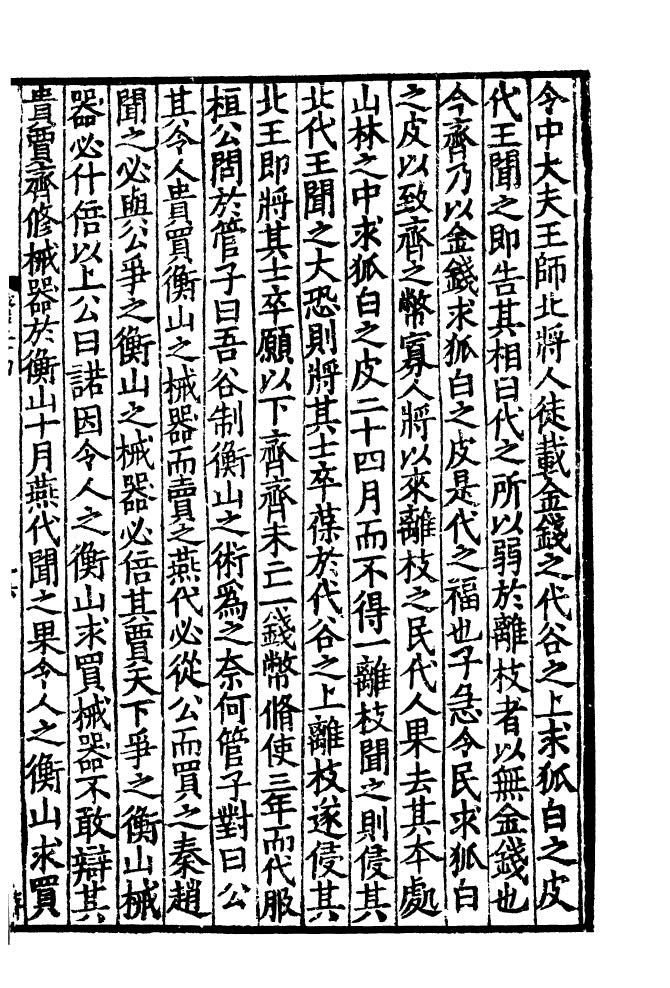 令中大夫王師北將人徒載金錢之代谷之上求狐白之皮
代王聞之即告其相曰代之所以弱於離枝者以無金錢也
今齊乃以金錢求狐白之皮是代之福也子急令民求狐白
之皮以致齊之幣寡人將以來離枝之民代人果去其本處
山林之中求狐白之皮二十四月而不得一離枝聞之則侵其
北代王聞之大恐則將其士卒葆於代谷之上離枝遂侵其
北王即將其士卒願以下齊齊未亡一錢幣脩使三年而代服
桓公問於管子曰吾谷制衡山之術為之奈何管子對曰公
其令人貴買衡山之械器而賣之燕代必從公而買之秦趙
聞之必與公爭之衡山之械器必倍其賈天下爭之衡山械
器必什倍以上公曰諾因令人之衡山求買械器不敢辯其
貴賈齊修械器於衡山十月燕代聞之果令人之衡山求買